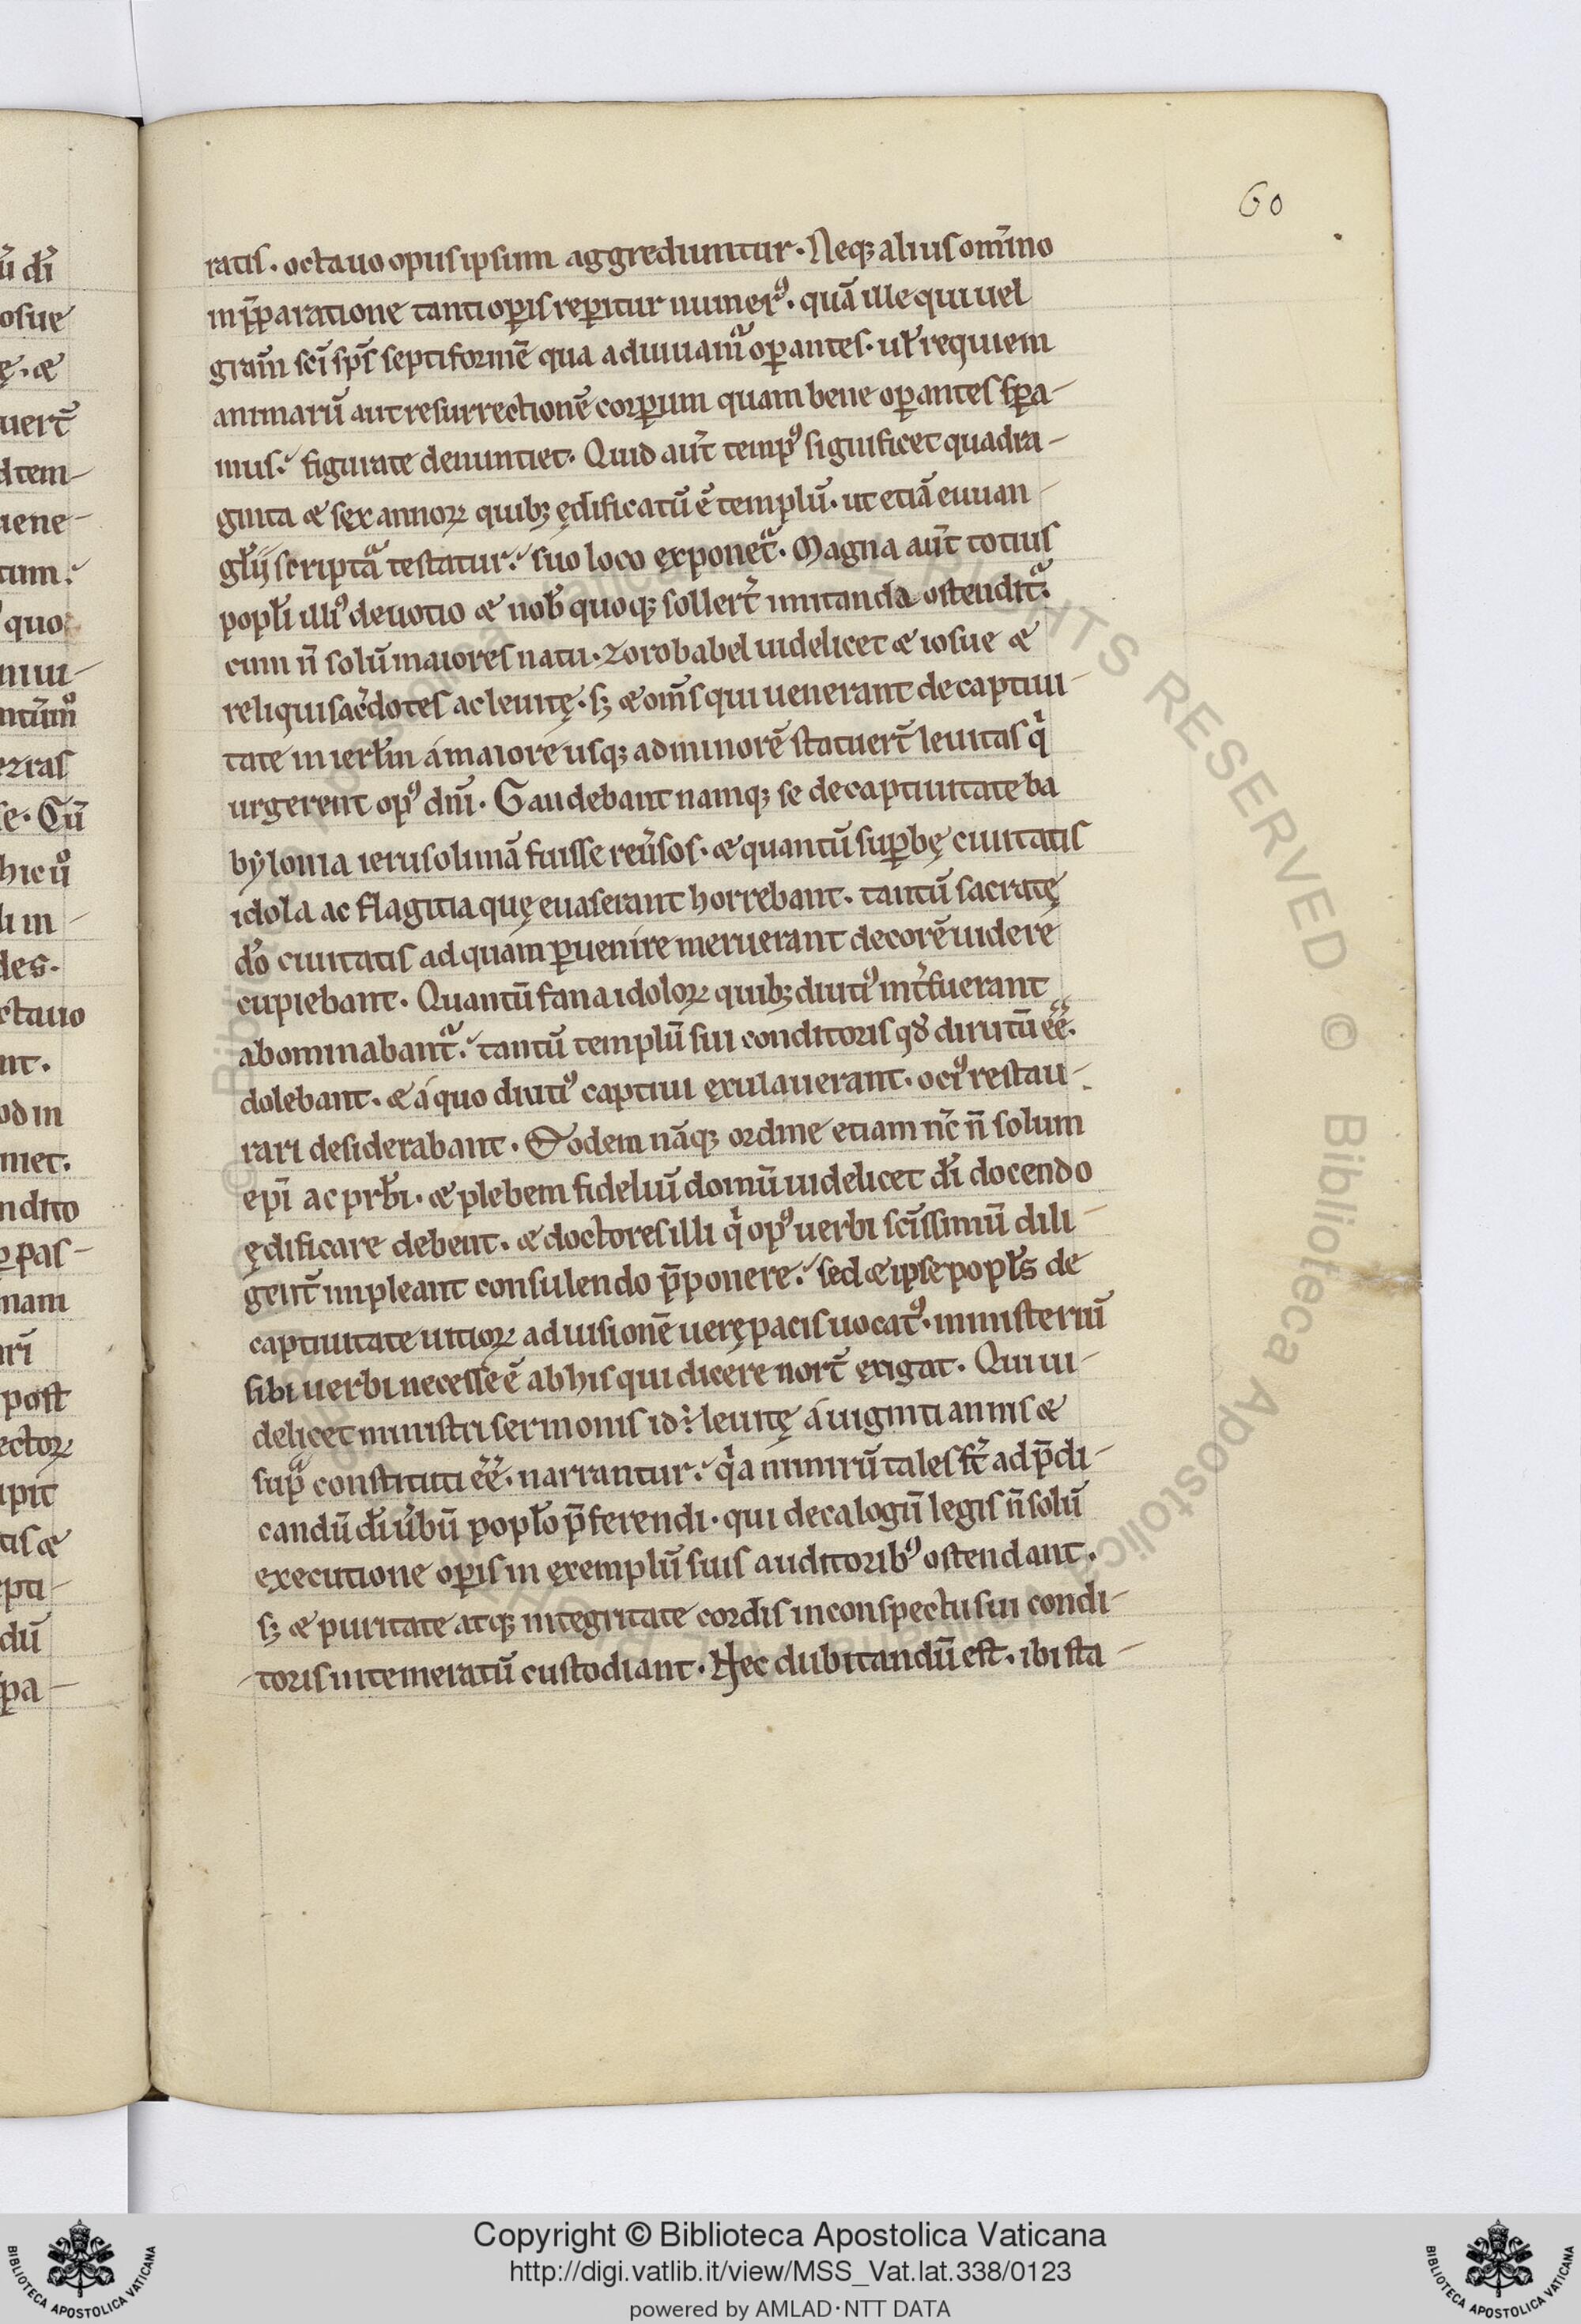 60
ratis. octauo opus ipsum aggrediuntur. Neq; alius om̅ino
in p̅paratione tanti op̲is rep̲itur numerꝰ. quā ille qui uel
gr̅am sc̅i sp̅s septiformē qua adiuuamur̃ op̲antes. ul̅ requiem
animarū aut resurrectionē corp̲um quam bene op̲antes sp̲a-
mus. figurate denuntiet. Quid aut̅ tempꝰ significet quadra-
ginta & sex annoꝝ quib; ędificatū ē templū. ut etiā euuan-
gl̅ij scriptᵃ̄ testatur. suo loco exponet᷑. Magna aut̅ totius
popl̅i illiꝰ deuotio & nob̅ quoq; sollert̅ imitanda ostendit᷑.
cum n̅ solū maiores natu. zorobabel uidelicet & iosue &
reliqui sac̅dotes ac leuitę. s; & om̅s qui uenerant de captiui-
tate in ierl̅m á maiore usq; ad minorē statuer̅t leuitas qⁱ
urgerent opꝰ dn̅i. Gaudebant namq; se de captiuitate ba
bylonia ierusolimā fuisse reu̅sos. & quantū sup̲bę ciuitatis
idola ac flagitia quę euaserant horrebant. tantū sacratę
dō ciuitatis ad quam p̲uenire meruerant decorē uidere
cupiebant. Quantū fana idoloꝝ quib; diutiꝰ int̅fuerant
abominabant᷑. tantū templū sui conditoris qd̅ dirutū ēē.
dolebant. & á quo diutiꝰ captiui exulauerant. ociꝰ restau-
rari desiderabant. Eodem nāq; ordine etiam nc̅ n̅ solum
ep̅i ac prb̅i. & plebem fideliū domū uidelicet dī docendo
ędificare debent. & doctores illi qⁱ opꝰ uerbi sc̅issimū dili-
gent̅ impleant consulendo p̅ponere. sed & ipse popl̅s de
captiuitate uitioꝝ ad uisionē uerę pacis uocatꝰ. ministeriū
sibi uerbi necesse ē ab his qui dicere nor̅t exigat. Qui ui-
delicet ministri sermonis id ÷ leuitę á uiginti annis &
supᵃ constituti ēē. narrantur. qⁱa nimirū tales st̅ ad p̅di-
candū dī u̅bū popl̅o p̅ferendi. qui decalogū legis n̅ solū
executione op̲is in exemplū suis auditoribꝰ ostendant.
s; & puritate atq; integritate cordis in conspectu sui condi-
toris intemeratū custodiant. Nec dubitandū est. ibi sta-
Copyright © Biblioteca Apostolica Vaticana
http://digi.vatlib.it/view/MSS_Vat.lat.338/0123
powered by AMLAD·NTT DATA